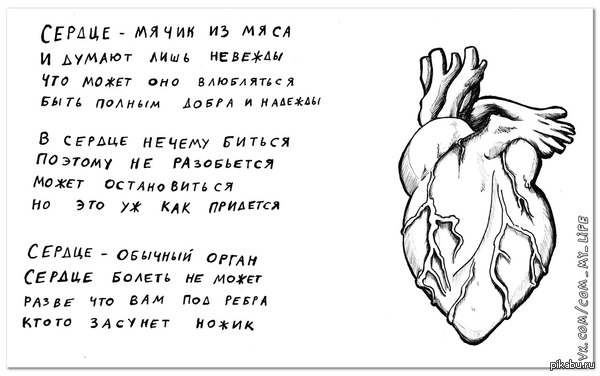 СЕРДЦЕ - МЯЧИК ИЗ МЯСА
И ДУМАЮТ ЛИШЬ НЕВЕЖДЫ
ЧТО МОЖЕТ ОНО ВЛЮБЛЯТЬСЯ
БЫТЬ ПОЛНЫМ ДОБРА И НАДЕЖДЫ
В СЕРДЦЕ НЕЧЕМУ БИТЬСЯ
ПОЭТОМУ НЕ РАЗОБЬЕТСЯ
МОЖЕТ ОСТАНОВИТЬСЯ
НО ЭТО УЖ КАК ПРИДЕТСЯ
СЕРДЦЕ - ОБЫЧНЫЙ ОРГАН
СЕРДЦЕ БОЛЕТЬ НЕ МОЖЕТ
РАЗВЕ ЧТО ВАМ ПОД РЕБРА
КТОТО ЗАСУНЕТ НОЖИК
VK.COM/COM_MY_LIFE
pikabu.ru